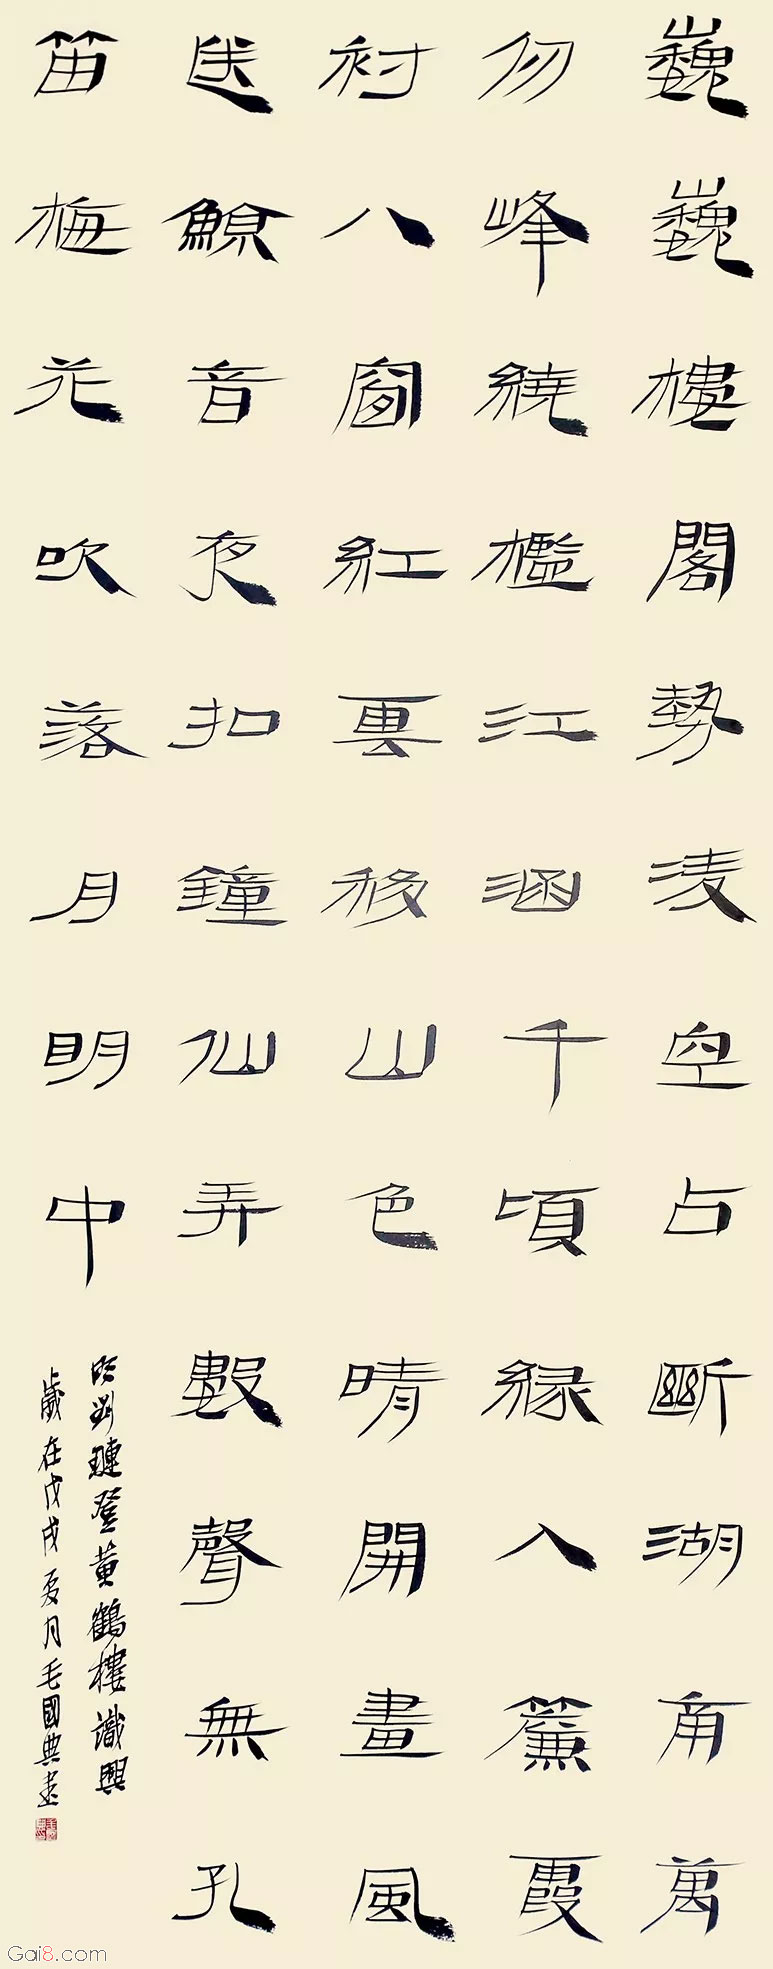 巍巍樓閣勢淩空占斷湖南萬
仞峰繞檻江涵千頃緑入簾霞
衬八窗紅裏移山色晴開畫風
送鯨音夜扣鐘仙弄數聲無孔
笛梅花吹落月明中
明劉璉登黄鶴樓識興
歲在戊戌夏月毛國典書
Gai8.com